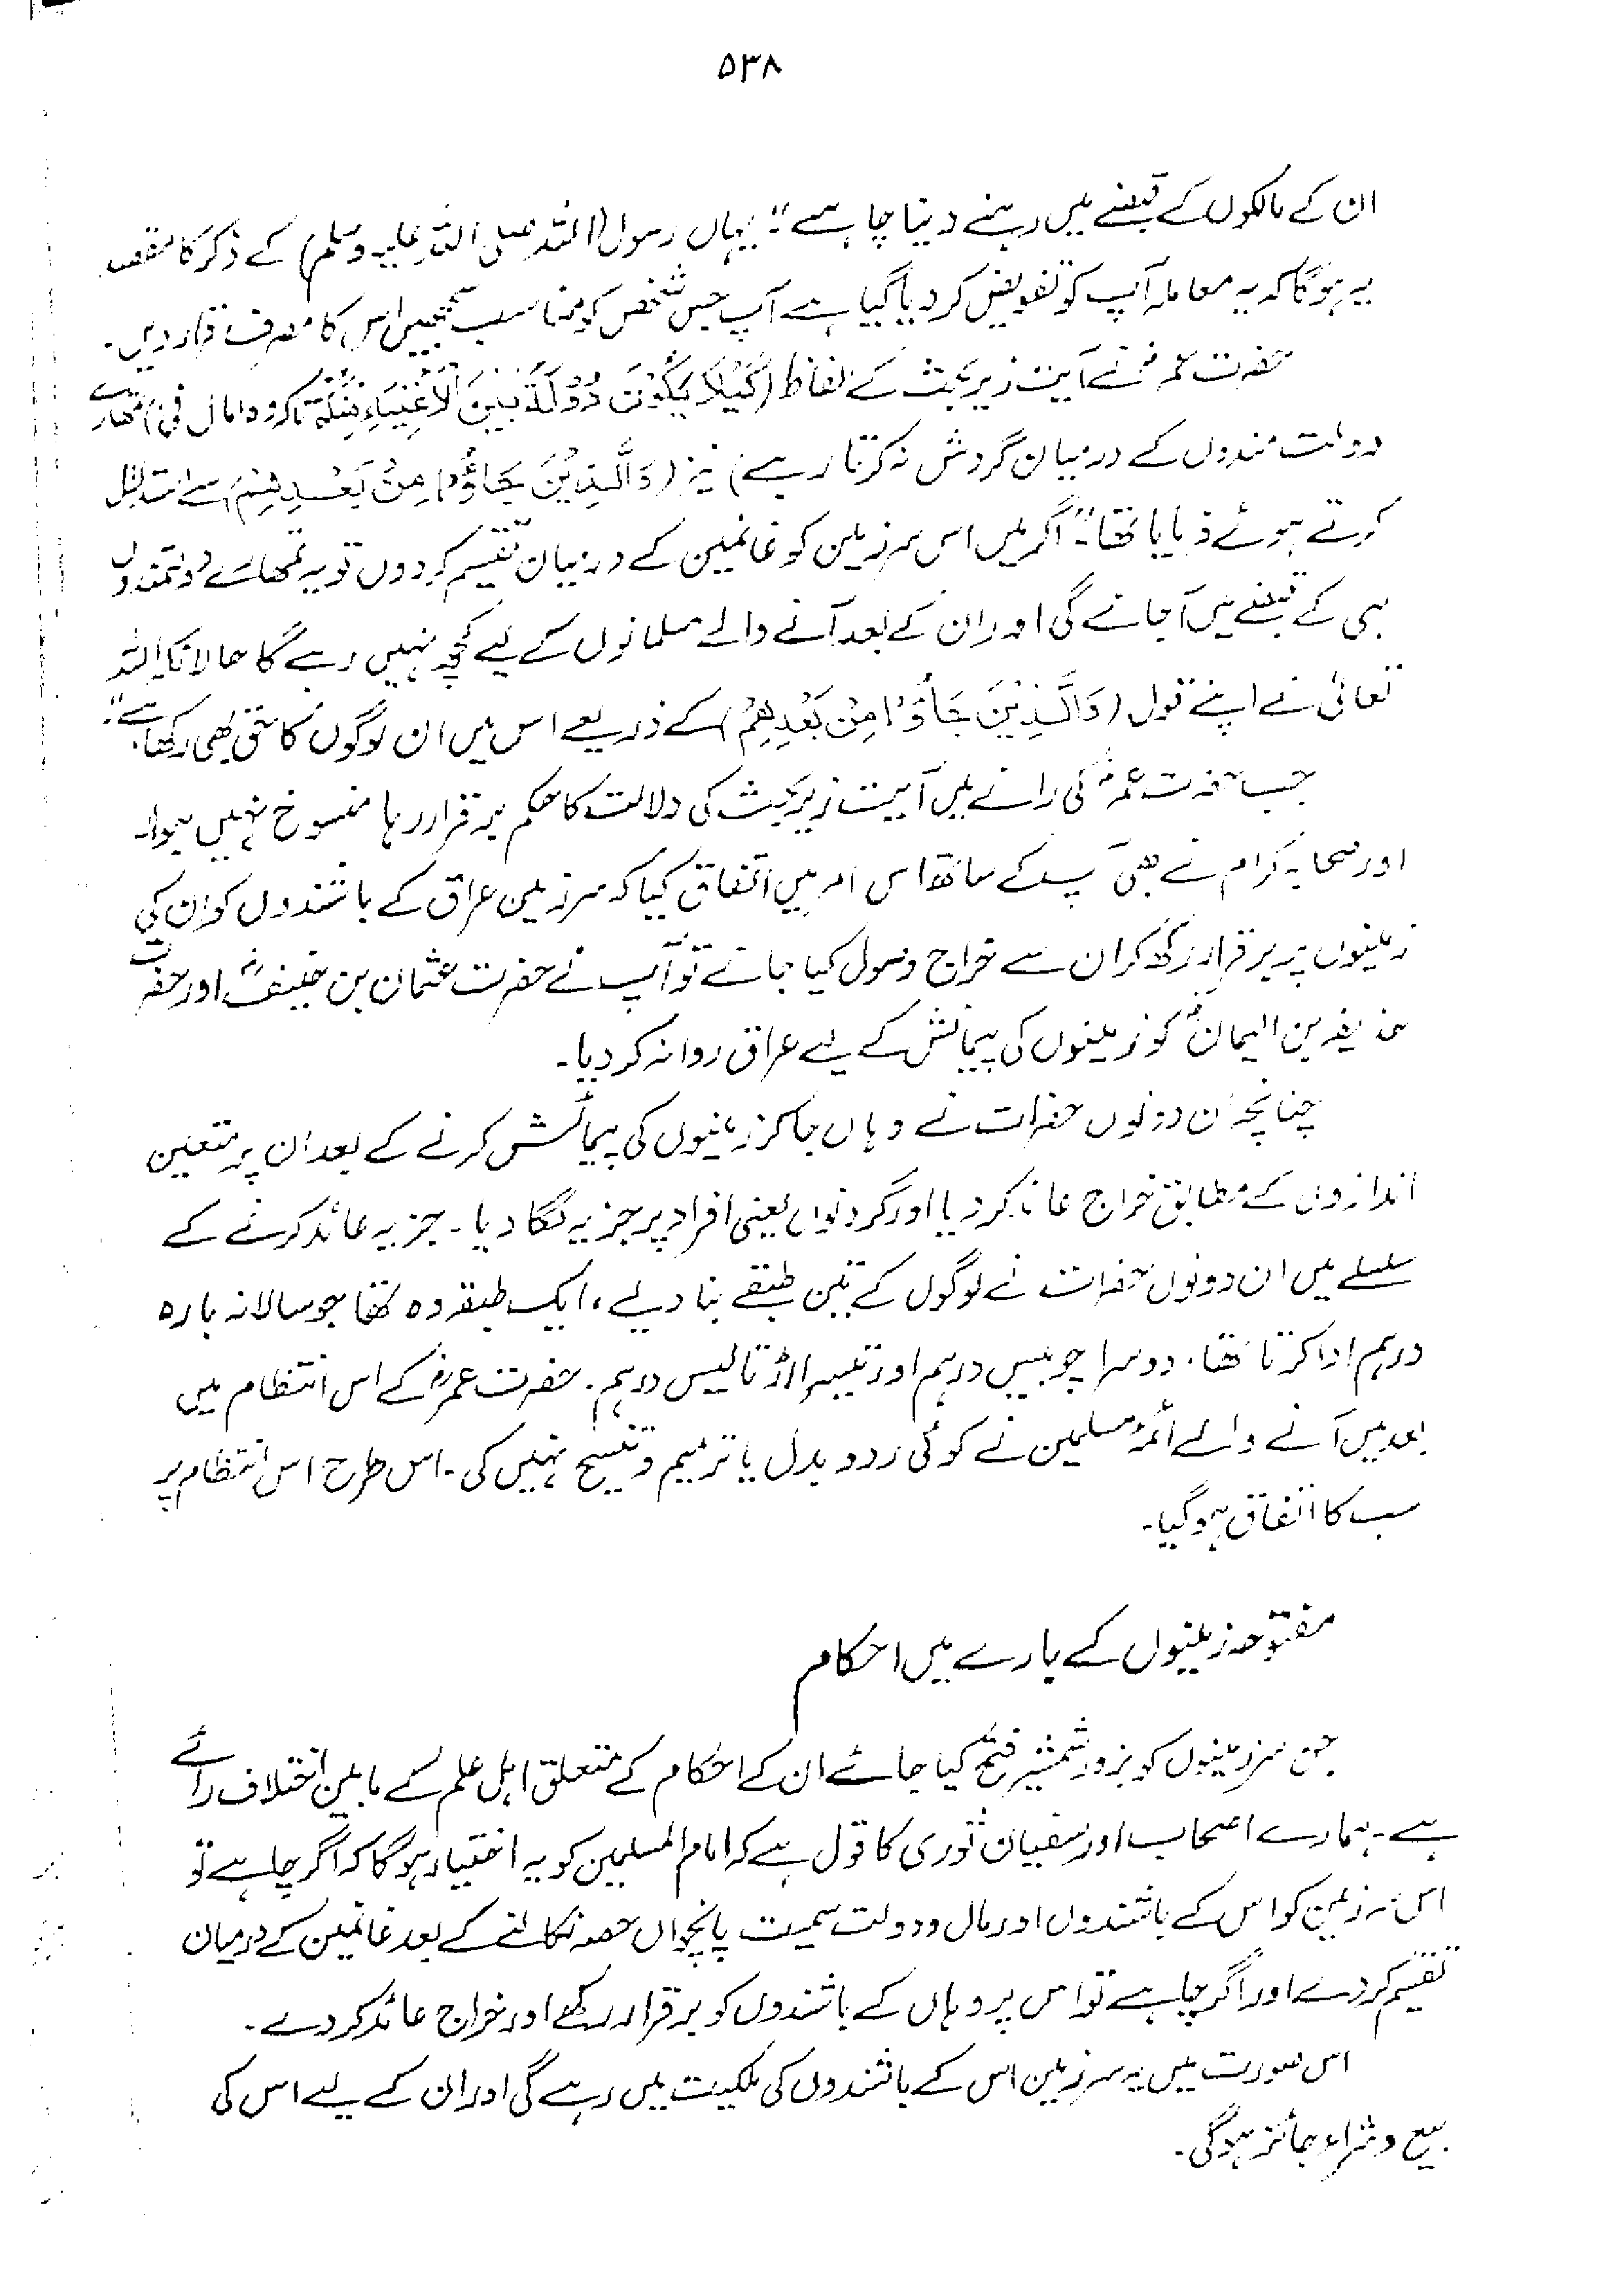 ۵۳۸
ان کے مالکوں کے قبضے میں رہنے دینا چاہیے"۔ یہاں رسول (اللہ صلی اللہ علیہ وسلم) کے ذکر کا مقصد
یہ ہوگا کہ یہ معاملہ آپ کو تفویض کر دیا گیا ہے آپ جس شخص کو مناسب سمجھیں اس کا مصرف قرار دیں۔
حضرت عمرؓ نے آیت زیر بحث کے الفاظ (كَيْلَا يَكُوْنَ دُوْلَةً بَيْنَ الْاَغْنِيَاءِ مِنْكُمْ تاکہ وہ (مال فئ) تمھارے
دولت مندوں کے درمیان گردش نہ کرتا رہے) نیز (وَالَّذِيْنَ جَاؤُا مِنْ بَعْدِهِمْ) سے استدلال
کرتے ہوئے فرمایا تھا۔ "اگر میں اس سرزمین کو غانمین کے درمیان تقسیم کر دوں تو یہ تمھارے دولتمندوں
ہی کے قبضے میں آجائے گی اور ان کے بعد آنے والے مسلمانوں کے لیے کچھ نہیں رہے گا حالانکہ اللہ
تعالیٰ نے اپنے قول (وَالَّذِيْنَ جَاؤُا مِنْ بَعْدِهِمْ) کے ذریعے اس میں ان لوگوں کا حق بھی رکھا ہے"۔
جب حضرت عمرؓ کی رائے میں آیت زیر بحث کی دلالت کا حکم برقرار رہا منسوخ نہیں ہوا۔
اور صحابہ کرام نے بھی آپ کے ساتھ اس امر میں اتفاق کیا کہ سرزمین عراق کے باشندوں کو ان کی
زمینوں پر برقرار رکھ کر ان سے خراج وصول کیا جائے تو آپ نے حضرت عثمان بن حنیفؓ اور حضرت
حذیفہ بن الیمانؓ کو زمینوں کی پیمائش کے لیے عراق روانہ کر دیا۔
چنانچہ ان دونوں حضرات نے وہاں جا کر زمینوں کی پیمائش کرنے کے بعد ان پر متعین
اندازوں کے مطابق خراج عائد کر دیا اور گردنوں یعنی افراد پر جزیہ لگا دیا۔ جزیہ عائد کرنے کے
سلسلے میں ان دونوں حضرات نے لوگوں کے تین طبقے بنا دیے، ایک طبقہ وہ تھا جو سالانہ بارہ
درہم ادا کرتا تھا۔ دوسرا چوبیس درہم اور تیسرا اڑتالیس درہم۔ حضرت عمرؓ کے اس انتظام میں
بعد میں آنے والے ائمۂ مسلمین نے کوئی ردوبدل یا ترمیم و تنسیخ نہیں کی۔ اس طرح اس انتظام پر
سب کا اتفاق ہوگیا۔
مفتوحہ زمینوں کے بارے میں احکام
جن سرزمینوں کو بزور شمشیر فتح کیا جائے ان کے احکام کے متعلق اہل علم کے مابین اختلاف رائے
ہے۔ ہمارے اصحاب اور سفیان ثوری کا قول ہے کہ امام المسلمین کو یہ اختیار ہوگا کہ اگر چاہے تو
اس سرزمین کو اس کے باشندوں اور مال و دولت سمیت پانچواں حصہ نکالنے کے بعد غانمین کے درمیان
تقسیم کر دے اور اگر چاہے تو اس پر وہاں کے باشندوں کو برقرار رکھے اور خراج عائد کر دے۔
اس صورت میں یہ سرزمین اس کے باشندوں کی ملکیت میں رہے گی اور ان کے لیے اس کی
بیع و شراء جائز ہوگی۔